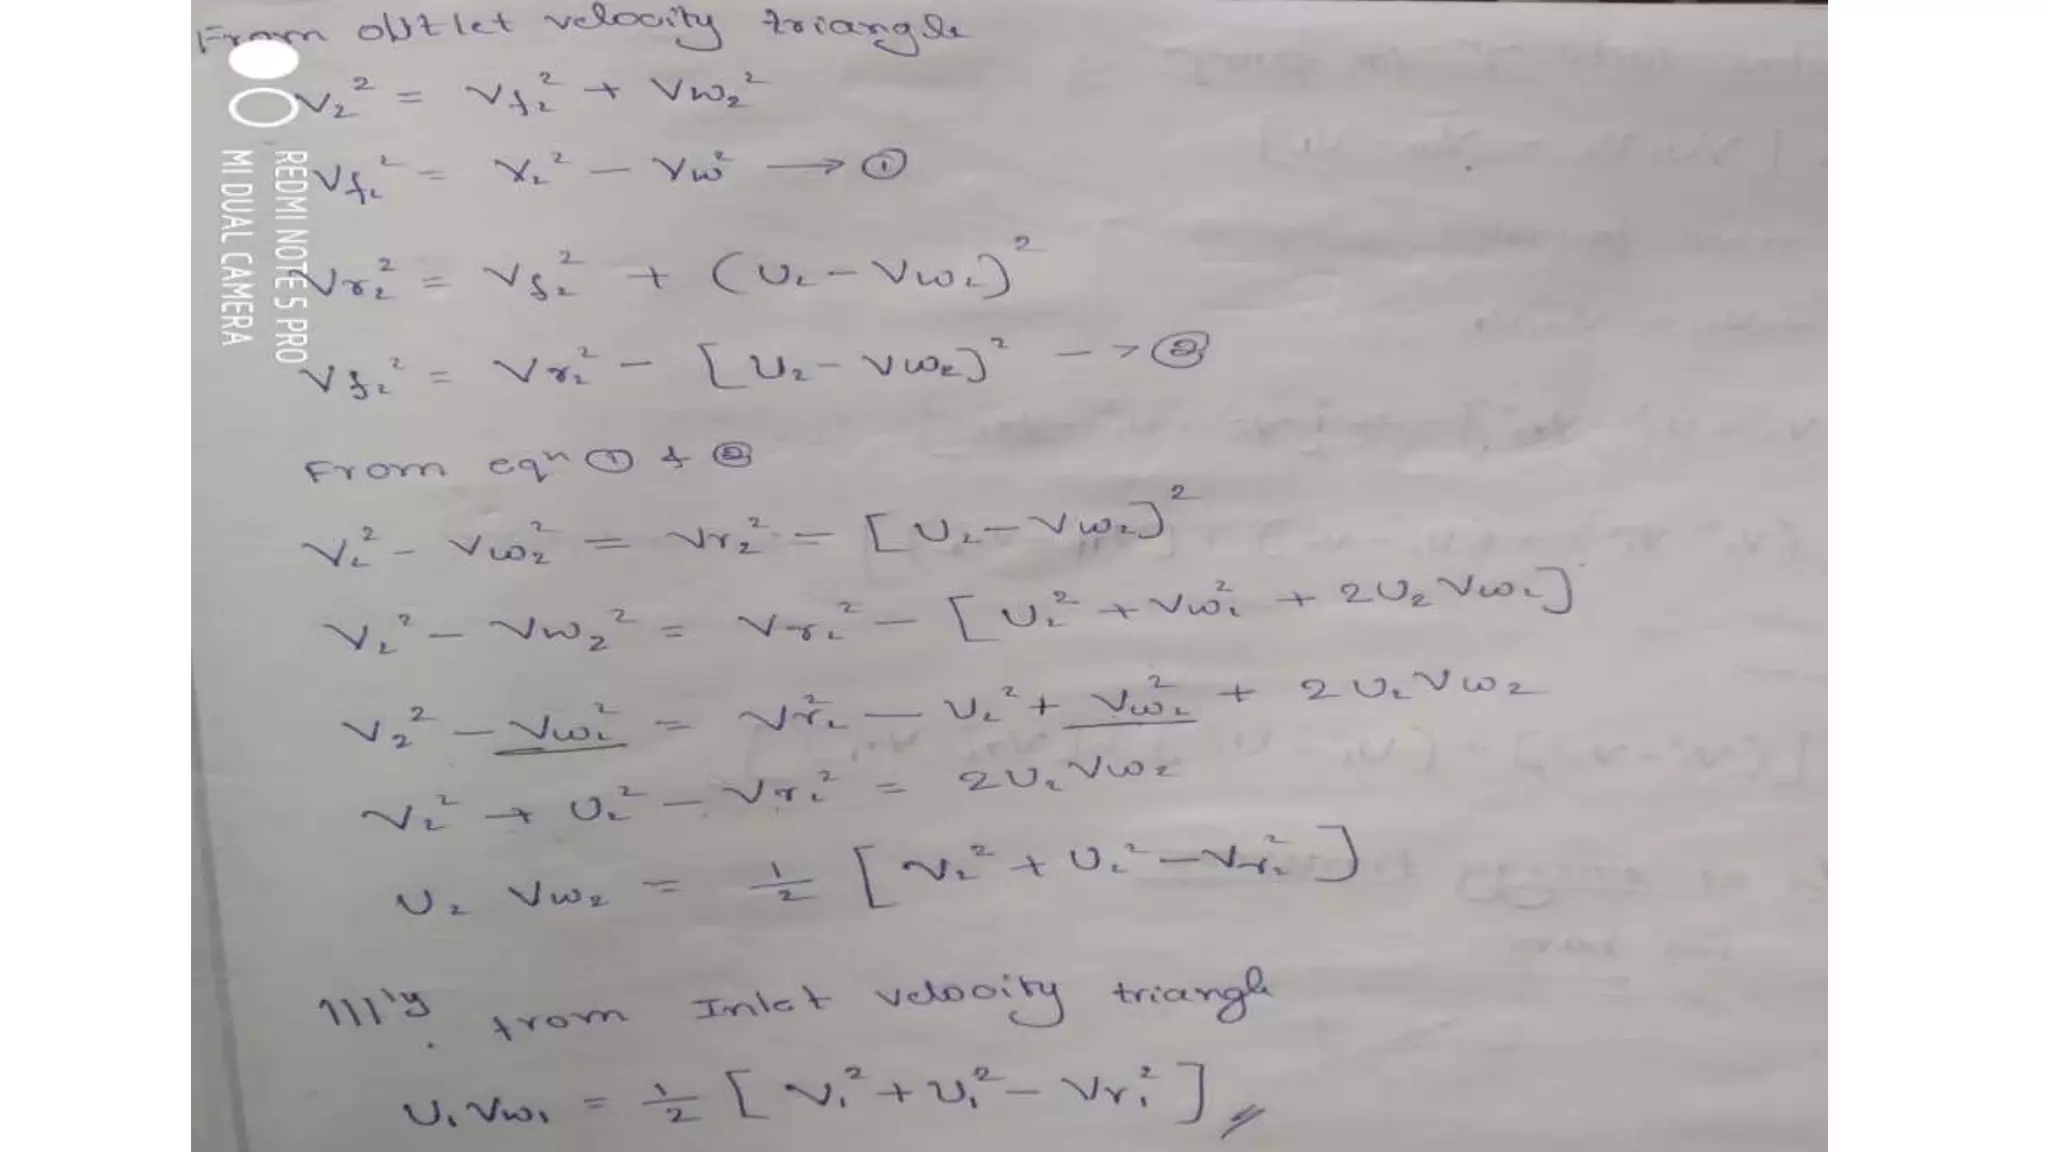 From outlet velocity triangle
V₂² = Vf₂² + Vw₂²
Vf₂² = V₂² − Vw² → ①
Vr₂² = Vf₂² + (U₂ − Vw₂)²
Vf₂² = Vr₂² − [U₂ − Vw₂]² → ②
From eqn ① & ②
V₂² − Vw₂² = Vr₂² − [U₂ − Vw₂]²
V₂² − Vw₂² = Vr₂² − [U₂² + Vw₂² + 2U₂Vw₂]
V₂² − Vw₂² = Vr₂² − U₂² + Vw₂² + 2U₂Vw₂
V₂² + U₂² − Vr₂² = 2U₂Vw₂
U₂ Vw₂ = ½ [V₂² + U₂² − Vr₂²]
111'y from Inlet velocity triangle
U₁Vw₁ = ½ [V₁² + U₁² − Vr₁²]
REDMI NOTE 5 PRO
MI DUAL CAMERA